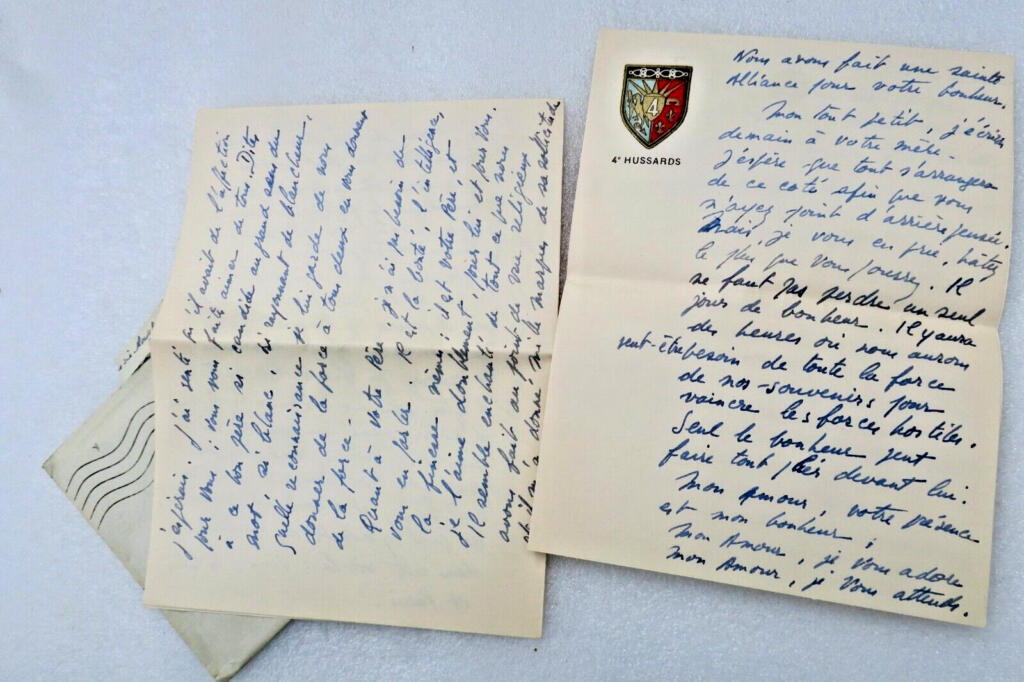 j'espérais. J'ai senti qu'il avait de l'affection
pour vous ; vous vous faites aimer de tous. Dites
à ce bon père si candide au grand sens du
mot, si blanc, si rayonnant de blancheur,
quelle reconnaissance je lui garde de nous
donner de la force à tous deux en vous donnant
de la force.
Quant à votre Père je n'ai pu besoin de
vous en parler. Il est la bonté, l'intelligence,
la finesse même ; il est votre Père, et
je l'aime doublement, pour lui et pour Vous.
Il semble enchanté de tout ce que nous
avons fait au point de vue religieux
et il m'a donné mille marques de sa sollicitude
4
4e HUSSARDS
Nous avons fait une sainte
Alliance pour votre bonheur.
Mon tout petit, j'écrirai
demain à votre mère.
J'espère que tout s'arrangera
de ce coté afin que vous
n'ayez point d'arrière pensée.
Mais, je vous en prie, hâtez
le plus que vous pourrez. Il
ne faut pas perdre un seul
jour de bonheur. Il y aura
des heures où nous aurons
peut-être besoin de toute la force
de nos souvenirs pour
vaincre les forces hostiles.
Seul le bonheur peut
faire tout plier devant lui.
Mon Amour, votre présence
est mon bonheur ;
Mon Amour, je vous adore
Mon Amour, je vous attends.